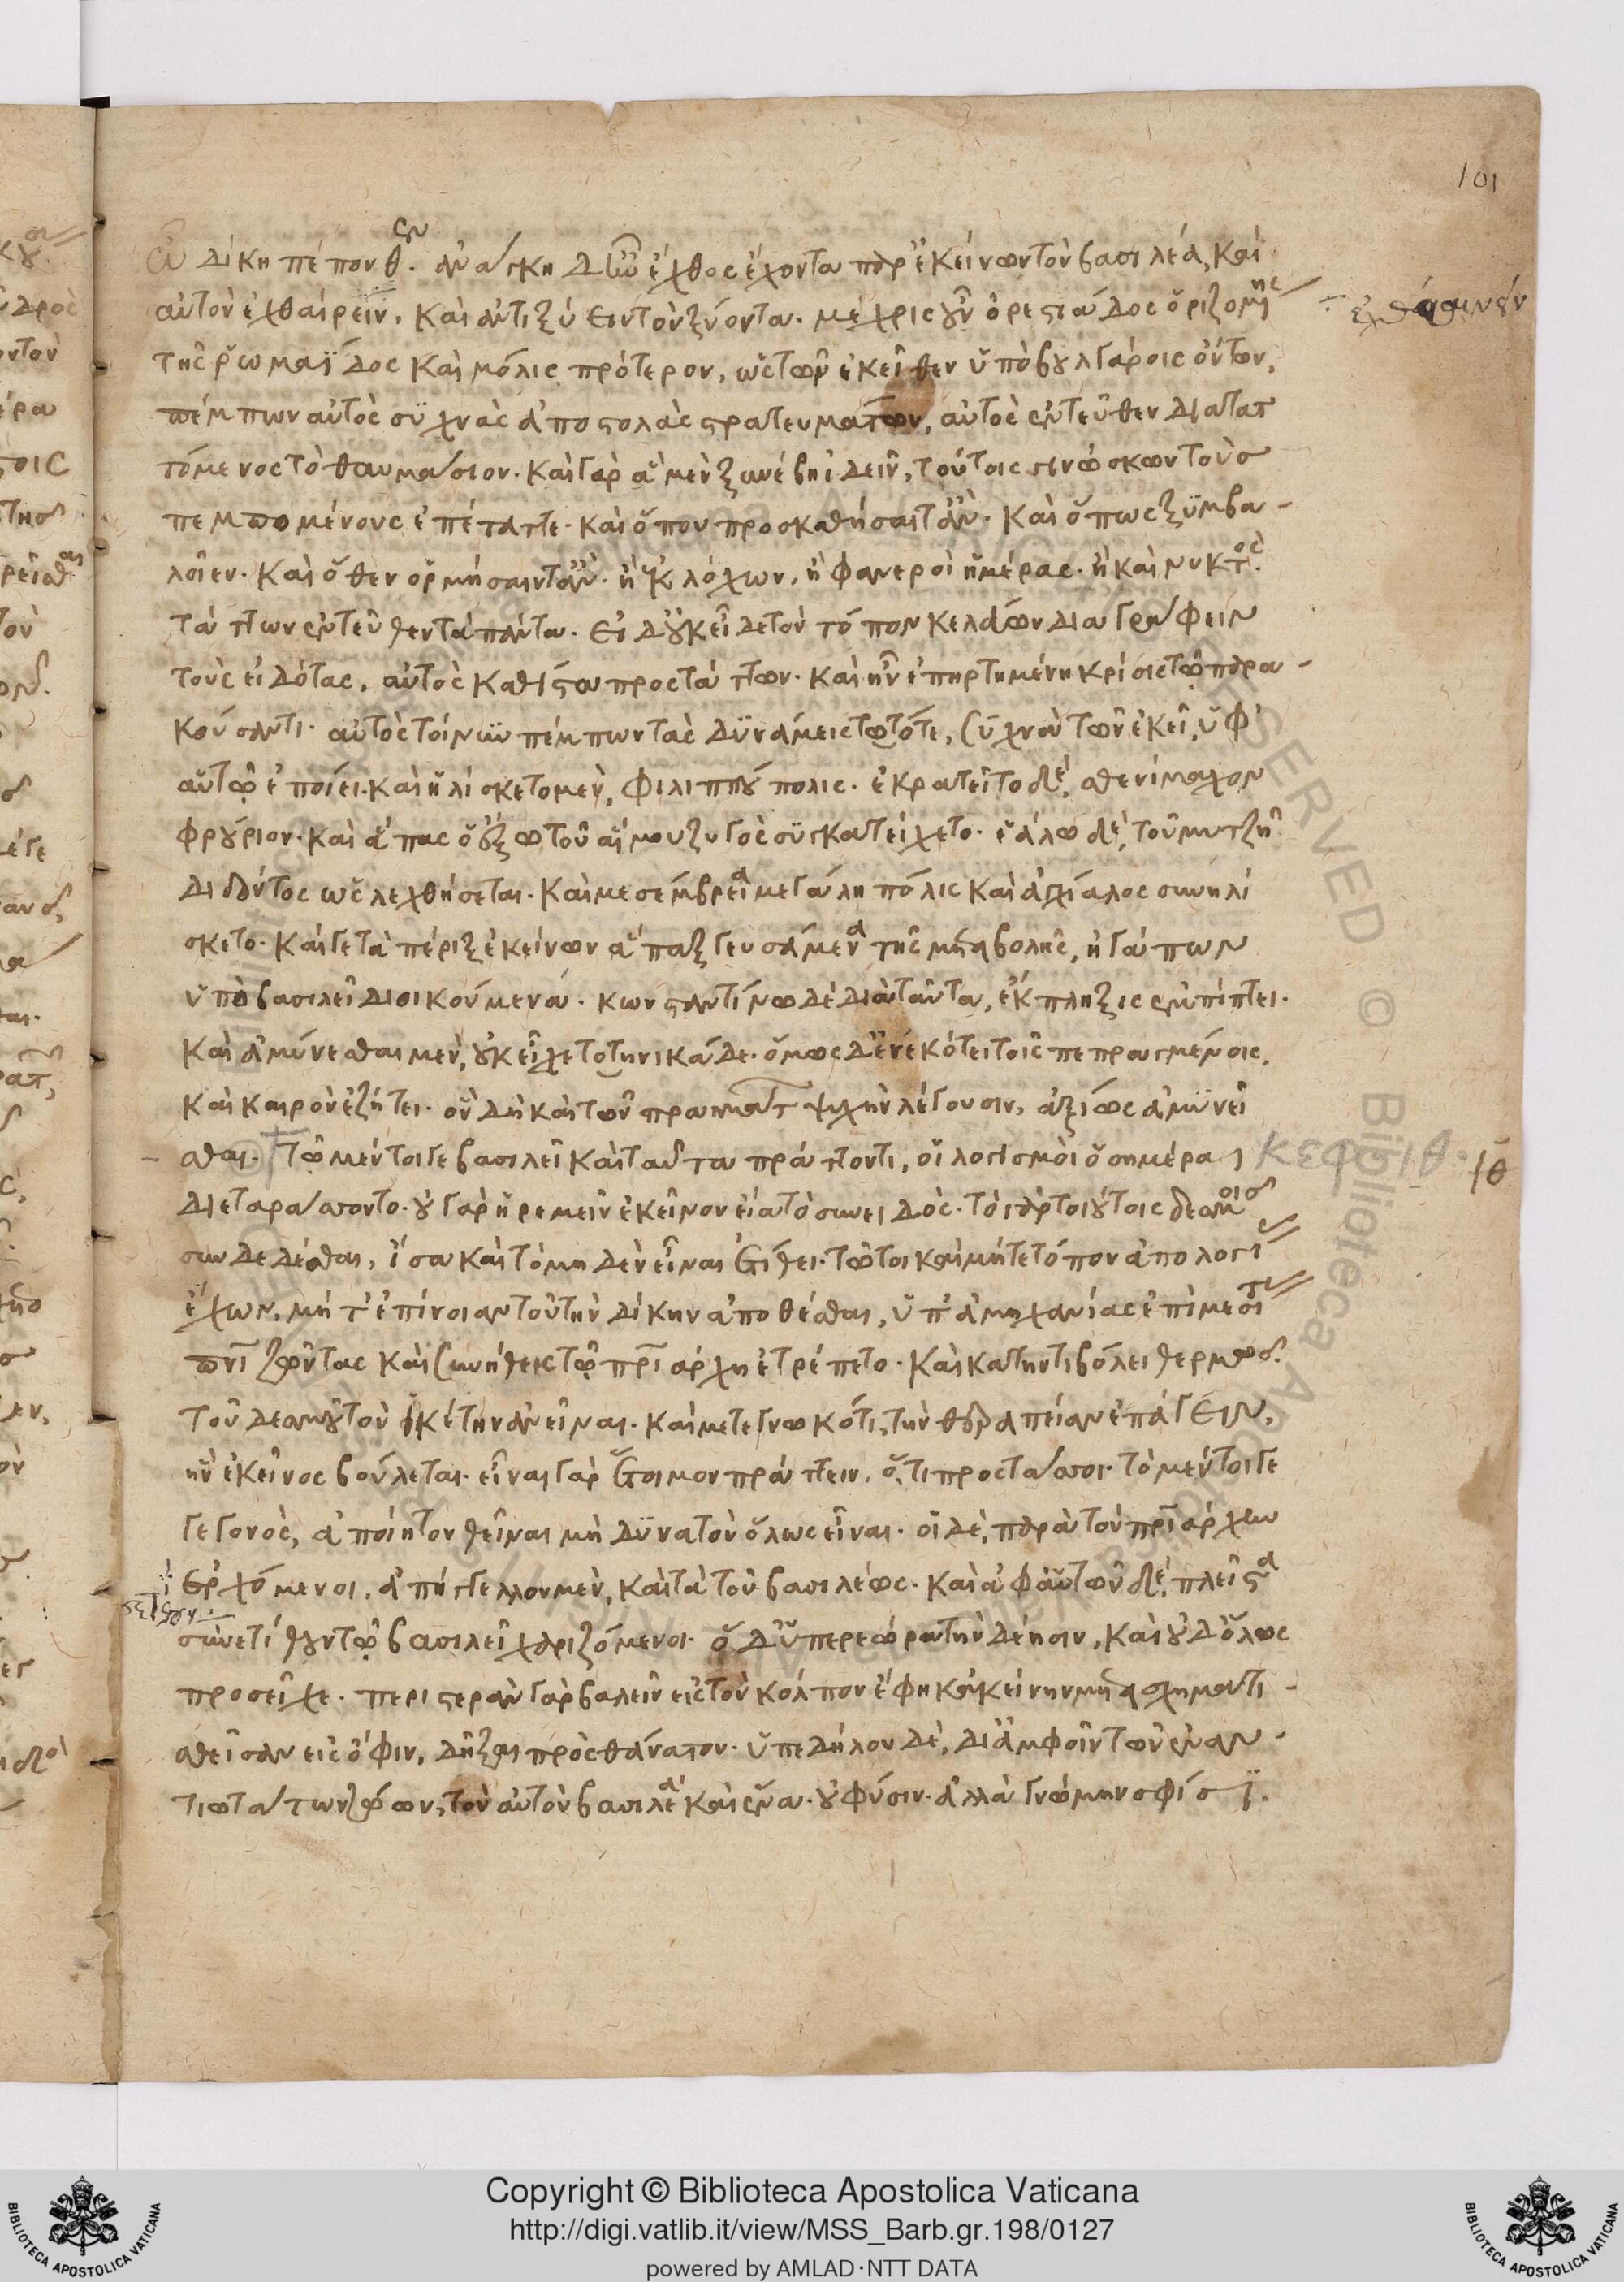 101
ὧ δίκη πέπονθεν. ἀνάγκη δ' ἦν ἔχθος ἔχοντα παρ' ἐκείνων τὸν βασιλέα, καὶ
αὐτὸν ἐχθαίρειν, καὶ ἀντιξύειν τὸν ξύοντα. μέχρις οὖν ὀρεστιάδος ὁριζομένης
τῆς ῥωμαΐδος καὶ μόλις πρότερον, ὡς τῶν ἐκεῖθεν ὑπὸ βουλγάροις ὄντων,
πέμπων αὐτὸς συχνὰς ἀποστολὰς στρατευμάτων, αὐτὸς ἐντεῦθεν διαταττ
τόμενος τὸ θαυμάσιον. καὶ γὰρ ἃ μὲν ξυνέβη ἰδεῖν, τούτοις γινώσκων τοὺς
πεμπομένους ἐπέταττε. καὶ ὅπου προσκαθήσαιτ' ἄν. καὶ ὅπως ξύμβα-
λοιεν. καὶ ὅθεν ὁρμήσαιντ' ἄν. ἢ ἐκ λόχων, ἢ φανεροὶ ἡμέρας. ἢ καὶ νυκτός.
τάττων ἐντεῦθεν τὰ πάντα. εἰ δ' οὐκ εἶδε τὸν τόπον κελεύων διαγράφειν
τοὺς εἰδότας, αὐτὸς καθίστα προστάττων. καὶ ἦν ἐπηρτημένη κρίσις τῷ παρα-
κούσαντι. αὐτὸς τοίνυν πέμπων τὰς δυνάμεις τῶ τότε, συχνὰ τῶν ἐκεῖ, ὑφ'
αὑτῷ ἐποίει. καὶ ἡλίσκετο μὲν, φιλιππούπολις. ἐκρατεῖτο δὲ, σθενίμαχον
φρούριον. καὶ ἅπας ὁ ἔξω τοῦ αἵμου ζυγὸς συγκατείχετο. ἑάλω δὲ, τοῦ μυτζῆ
διδόντος ὡς λεχθήσεται. καὶ μεσέμβρεια μεγάλη πόλις καὶ ἀγχίαλος συνηλί
σκετο. καί γε τὰ πέριξ ἐκείνων ἅπαξ γευσάμενα τῆς μεταβολῆς, ἠγάπων
ὑπὸ βασιλεῖ διοικούμενα. κωνσταντίνω δὲ διὰ ταῦτα, ἔκπληξις ἐμπίπτει.
καὶ ἀμύνεσθαι μὲν, οὐκ εἶχε τοτηνικάδε. ὅμως δ' ἐνεκότει τοῖς πεπραγμένοις,
καὶ καιρὸν ἐζήτει. ὃν δὴ καὶ τῶν πραγμάτ ψυχὴν λέγουσιν, ἀξίως ἀμυνεῖ
σθαι. τῷ μέντοιγε βασιλεῖ καὶ ταῦτα πράττοντι, οἱ λογισμοὶ ὁσημέραι
κεφ ιθ. ιθ
διεταράσσοντο. οὐ γὰρ ἠρεμεῖν ἐκεῖνον εἴα τὸ συνειδός. τὸ γὰρ τοιούτοις δεσμοῖς
συνδεδέσθαι, ἴσα καὶ τὸ μηδὲν εἶναι ἐτίθει. τῶ τοι καὶ μήτε τόπον ἀπολογίας
ἔχων, μή τ' ἐπίνοιαν τοῦ τὴν δίκην ἀποθέσθαι, ὑπ' ἀμηχανίας ἐπὶ μεσιτείας
πνίζοντας καὶ συνήθεις τῷ πριάρχη ἐτρέπετο. καὶ κατηντιβόλει θερμῶς.
τοῦ δεσμοῦ τὸν ἱκέτην ἀνεῖναι. καὶ μετεγνωκότι, τὴν θεραπείαν ἐπάγειν,
ἣν ἐκεῖνος βούλεται. εἶναι γὰρ ἕτοιμον πράττειν, ὅ,τι προστάσσοι. τὸ μέντοιγε
γεγονὸς, ἀποίητον θεῖναι μὴ δυνατὸν ὅλως εἶναι. οἱ δὲ, παρὰ τὸν πριάρχην
ἐρχόμενοι, ἀπήγγελλον μὲν, καὶ τὰ τοῦ βασιλέως. καὶ ἀφ' αὑτῶν δὲ, πλεῖστα
συνετίθουν τῷ βασιλεῖ χαριζόμενοι. ὁ δ' ὑπερεώρα τὴν δέησιν, καὶ οὐδ' ὅλως
προσεῖχε. περιστερὰν γὰρ βαλεῖν εἰς τὸν κόλπον ἔφη κἀκείνην μετασχηματι-
σθεῖσαν εἰς ὄφιν, δῆξαι πρὸς θάνατον. ὑπεδήλου δὲ, δι' ἀμφοῖν τῶν ἐναν-
τιωτάτων ζώων, τὸν αὐτὸν βασιλέα καὶ ἕνα. οὐ φύσιν. ἀλλὰ γνώμην σφίσι.
Copyright © Biblioteca Apostolica Vaticana
http://digi.vatlib.it/view/MSS_Barb.gr.198/0127
powered by AMLAD·NTT DATA
BIBLIOTECA APOSTOLICA VATICANA
BIBLIOTECA APOSTOLICA VATICANA